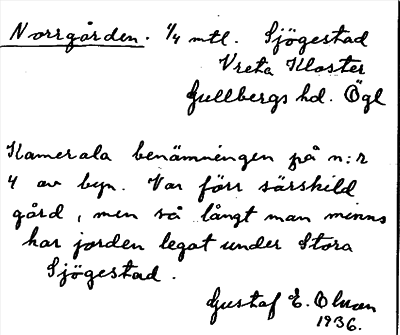 Norrgården. 1/4 mtl. Sjögestad
Vreta Kloster
Gullbergs hd. Ögl
Kamerala benämningen på n:r
4 av byn. Var förr särskild
gård, men så långt man minns
har jorden legat under Stora
Sjögestad.
Gustaf E. Olsson
1936.